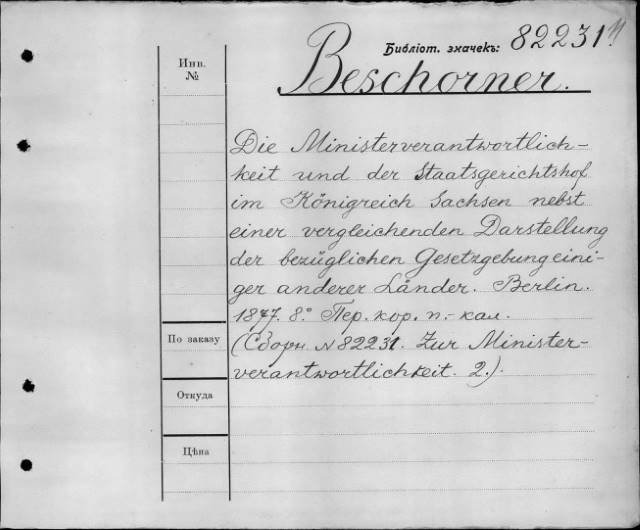 Библіот. значекъ: 82231
Beschorner.
Инв.
№
Die Ministerverantwortlich-
keit und der Staatsgerichtshof
im Königreich Sachsen nebst
einer vergleichenden Darstellung
der bezüglichen Gesetzgebung eini-
ger anderer Länder. Berlin.
1877. 8º Пер. кор. п.-кал.
(Сборн. № 82231. Zur Minister-
verantwortlichkeit. 2.).
По заказу
Откуда
Цѣна